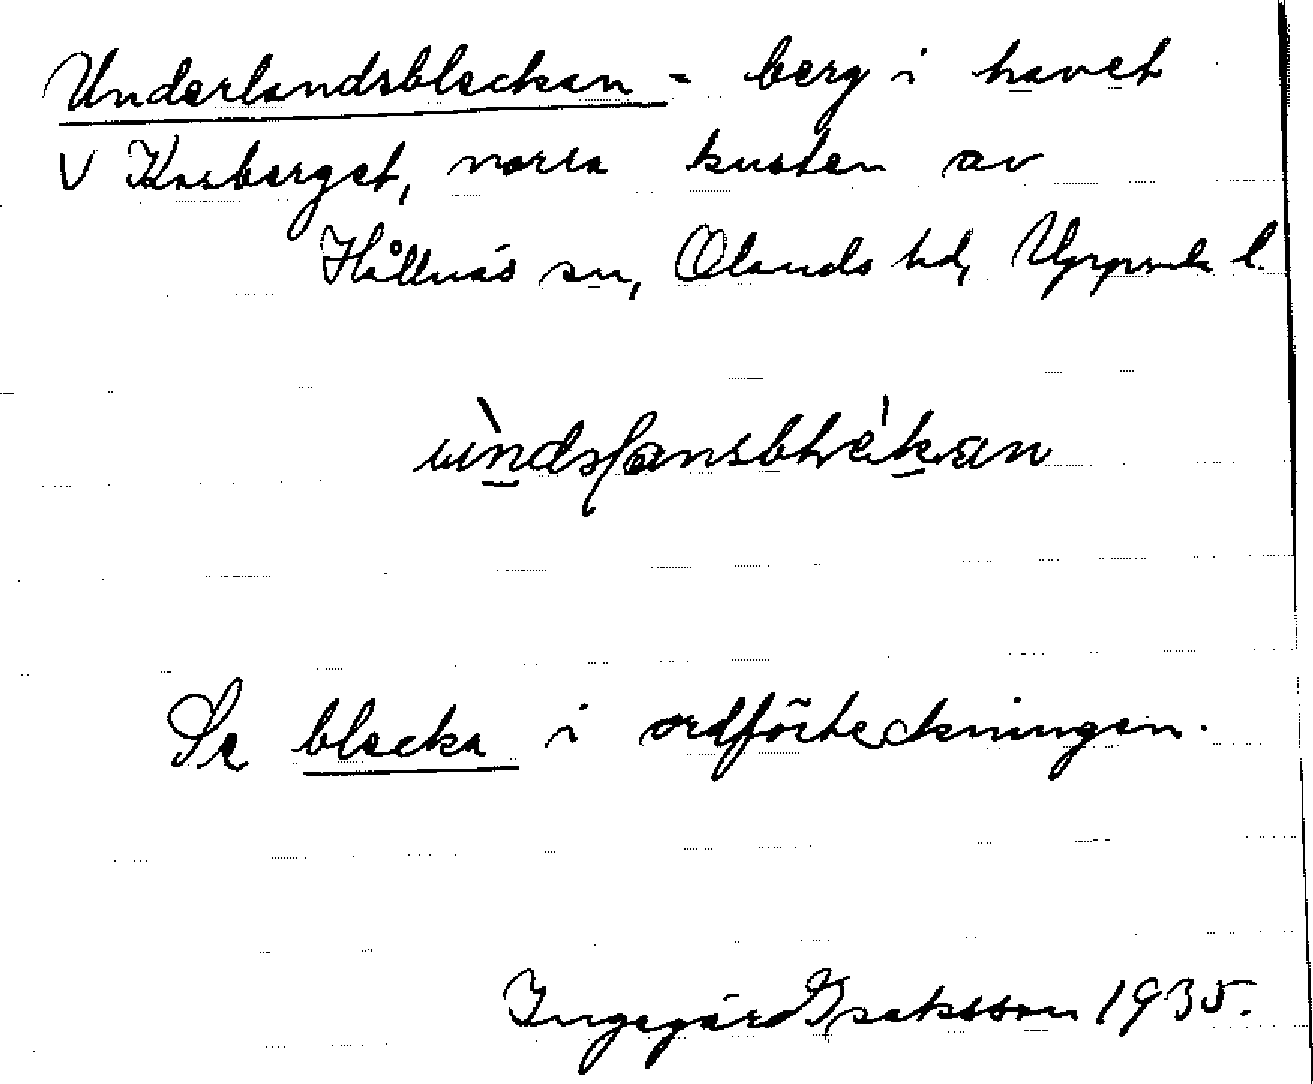 Underlandsbleckan - berg i havet
V Kasberget, norra kusten av
Hållnäs sn, Olands hd, Uppsala l.
Se blecka i ordförteckningen.
Ingegärd Isaksson 1935.